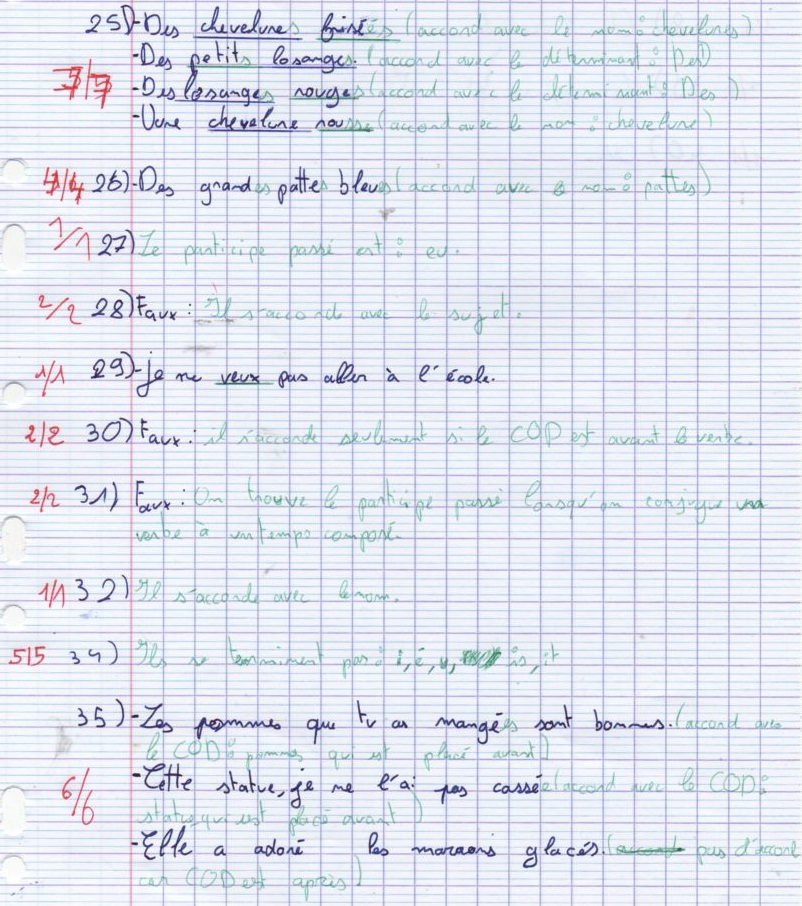 25) -Des chevelures frisées (accord avec le nom : chevelures)
-Des petits losanges. (accord avec le déterminant : Des)
7/7 -Des losanges rouges (accord avec le déterminant : Des)
-Une chevelure rousse (accord avec le nom : chevelure)
4/4 26) -Des grandes pattes bleues (accord avec nom : pattes)
1/1 27) Le participe passé est : eu.
2/2 28) Faux : Il s'accorde avec le sujet.
1/1 29) -je ne veux pas aller à l'école.
2/2 30) Faux : il s'accorde seulement si le COD est avant le verbe.
2/2 31) Faux : On trouve le participe passé lorsqu'on conjugue un
verbe à un temps composé.
1/1 32) Il s'accorde avec le nom.
5/5 34) Ils se terminent par : i, é, u, is, it
35) -Les pommes que tu as mangées sont bonnes. (accord avec
le COD : pommes qui est placé avant)
6/6 -Cette statue, je ne l'ai pas cassée (accord avec le COD :
statue qui est placé avant)
-Elle a adoré les marrons glacés. (pas d'accord
car COD est après)